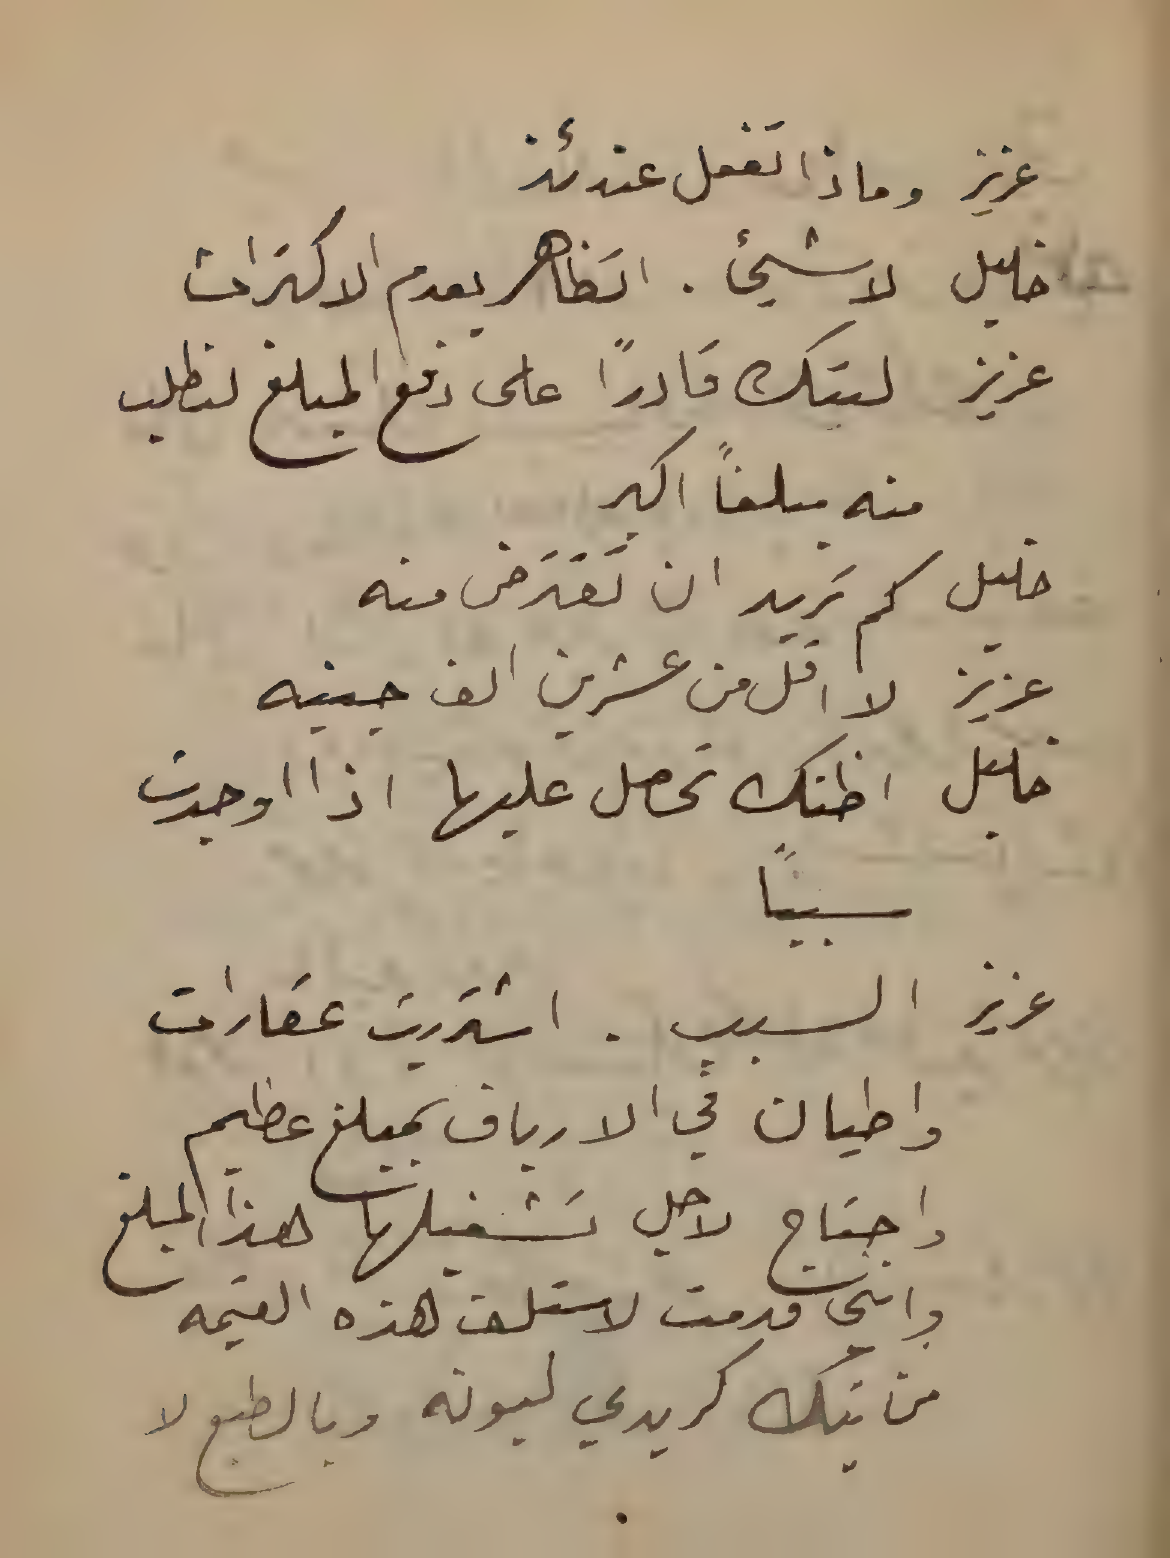 عزيز وماذا تفعل عندئذ
خليل لا شيئ . اتظاهر بعدم الاكتراث
عزيز ليتك قادرًا على دفع المبلغ لنطلب
منه مبلغاً اكبر
خليل كم تريد ان تقترض منه
عزيز لا اقل من عشرين الف جينيه
خليل اظنك تحصل عليها اذا اوجدت
سببًا
عزيز السبب . اشتريت عقارات
واطيان في الارياف بمبلغ عظيم
واحتاج لاجل تشغيلها لهذا المبلغ
وانني قدمت لاستلف هذه القيمه
من بنك كريدي ليونه وبالطبع لا